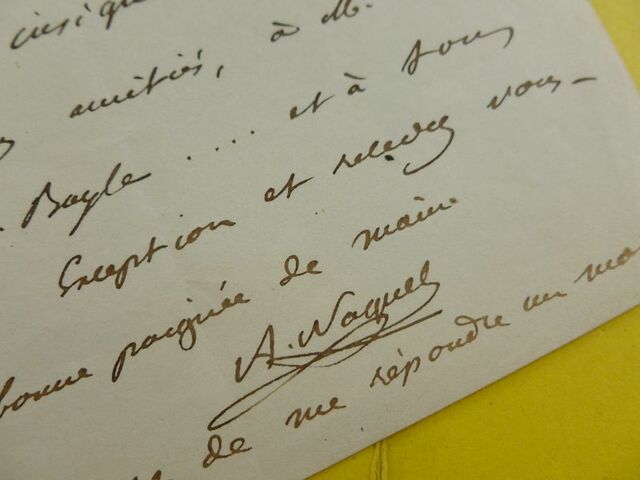 amitiés, à M.
Bayle .... et à tous
Exception et recevez vous-
bonne poignée de main
A. Naquet
de me répondre un mo